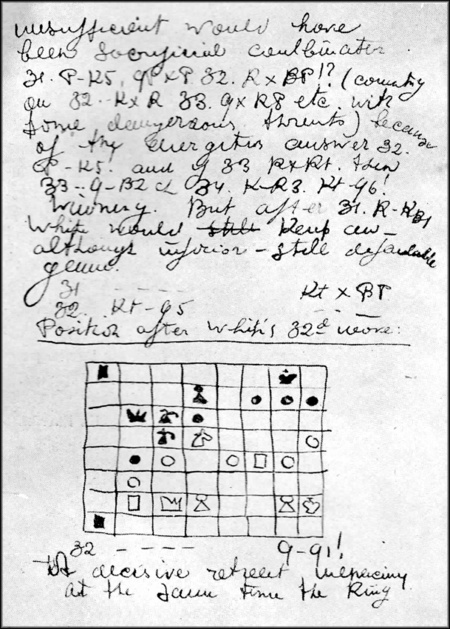 insufficient would have
been sacrificial combination.
31. P-K5, QP x P 32. R x BP!? (counting
on 32. - K x R 33. Q x R8 etc. with
some dangerous threats) because
of the energetic answer 32.
P-K5. and if 33 R x Kt. then
33 - Q-B2 34. K-R3. Kt-Q6!
Winning. But after 31. R-KB1
White would still keep an -
although inferior - still defendable
game.
31 - - - - - Kt x BP
32. Kt-Q5 - - -
Position after White's 32d move:
32 - - - - Q-Q1!
A decisive retreat menacing
at the same time the King